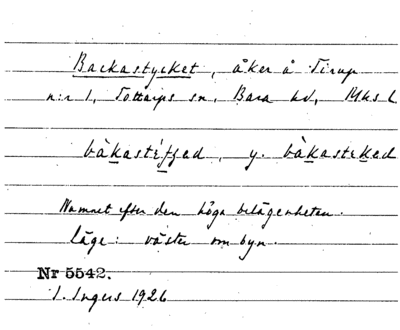 Backastycket, åker å Tirup
n:r 1, Tottarps sn, Bara hd, Mhs l
bàkastéfjad, y. bàkastekad
Namnet efter den höga belägenheten.
läge: väster om byn.
Nr 5542.
I. Ingers 1926